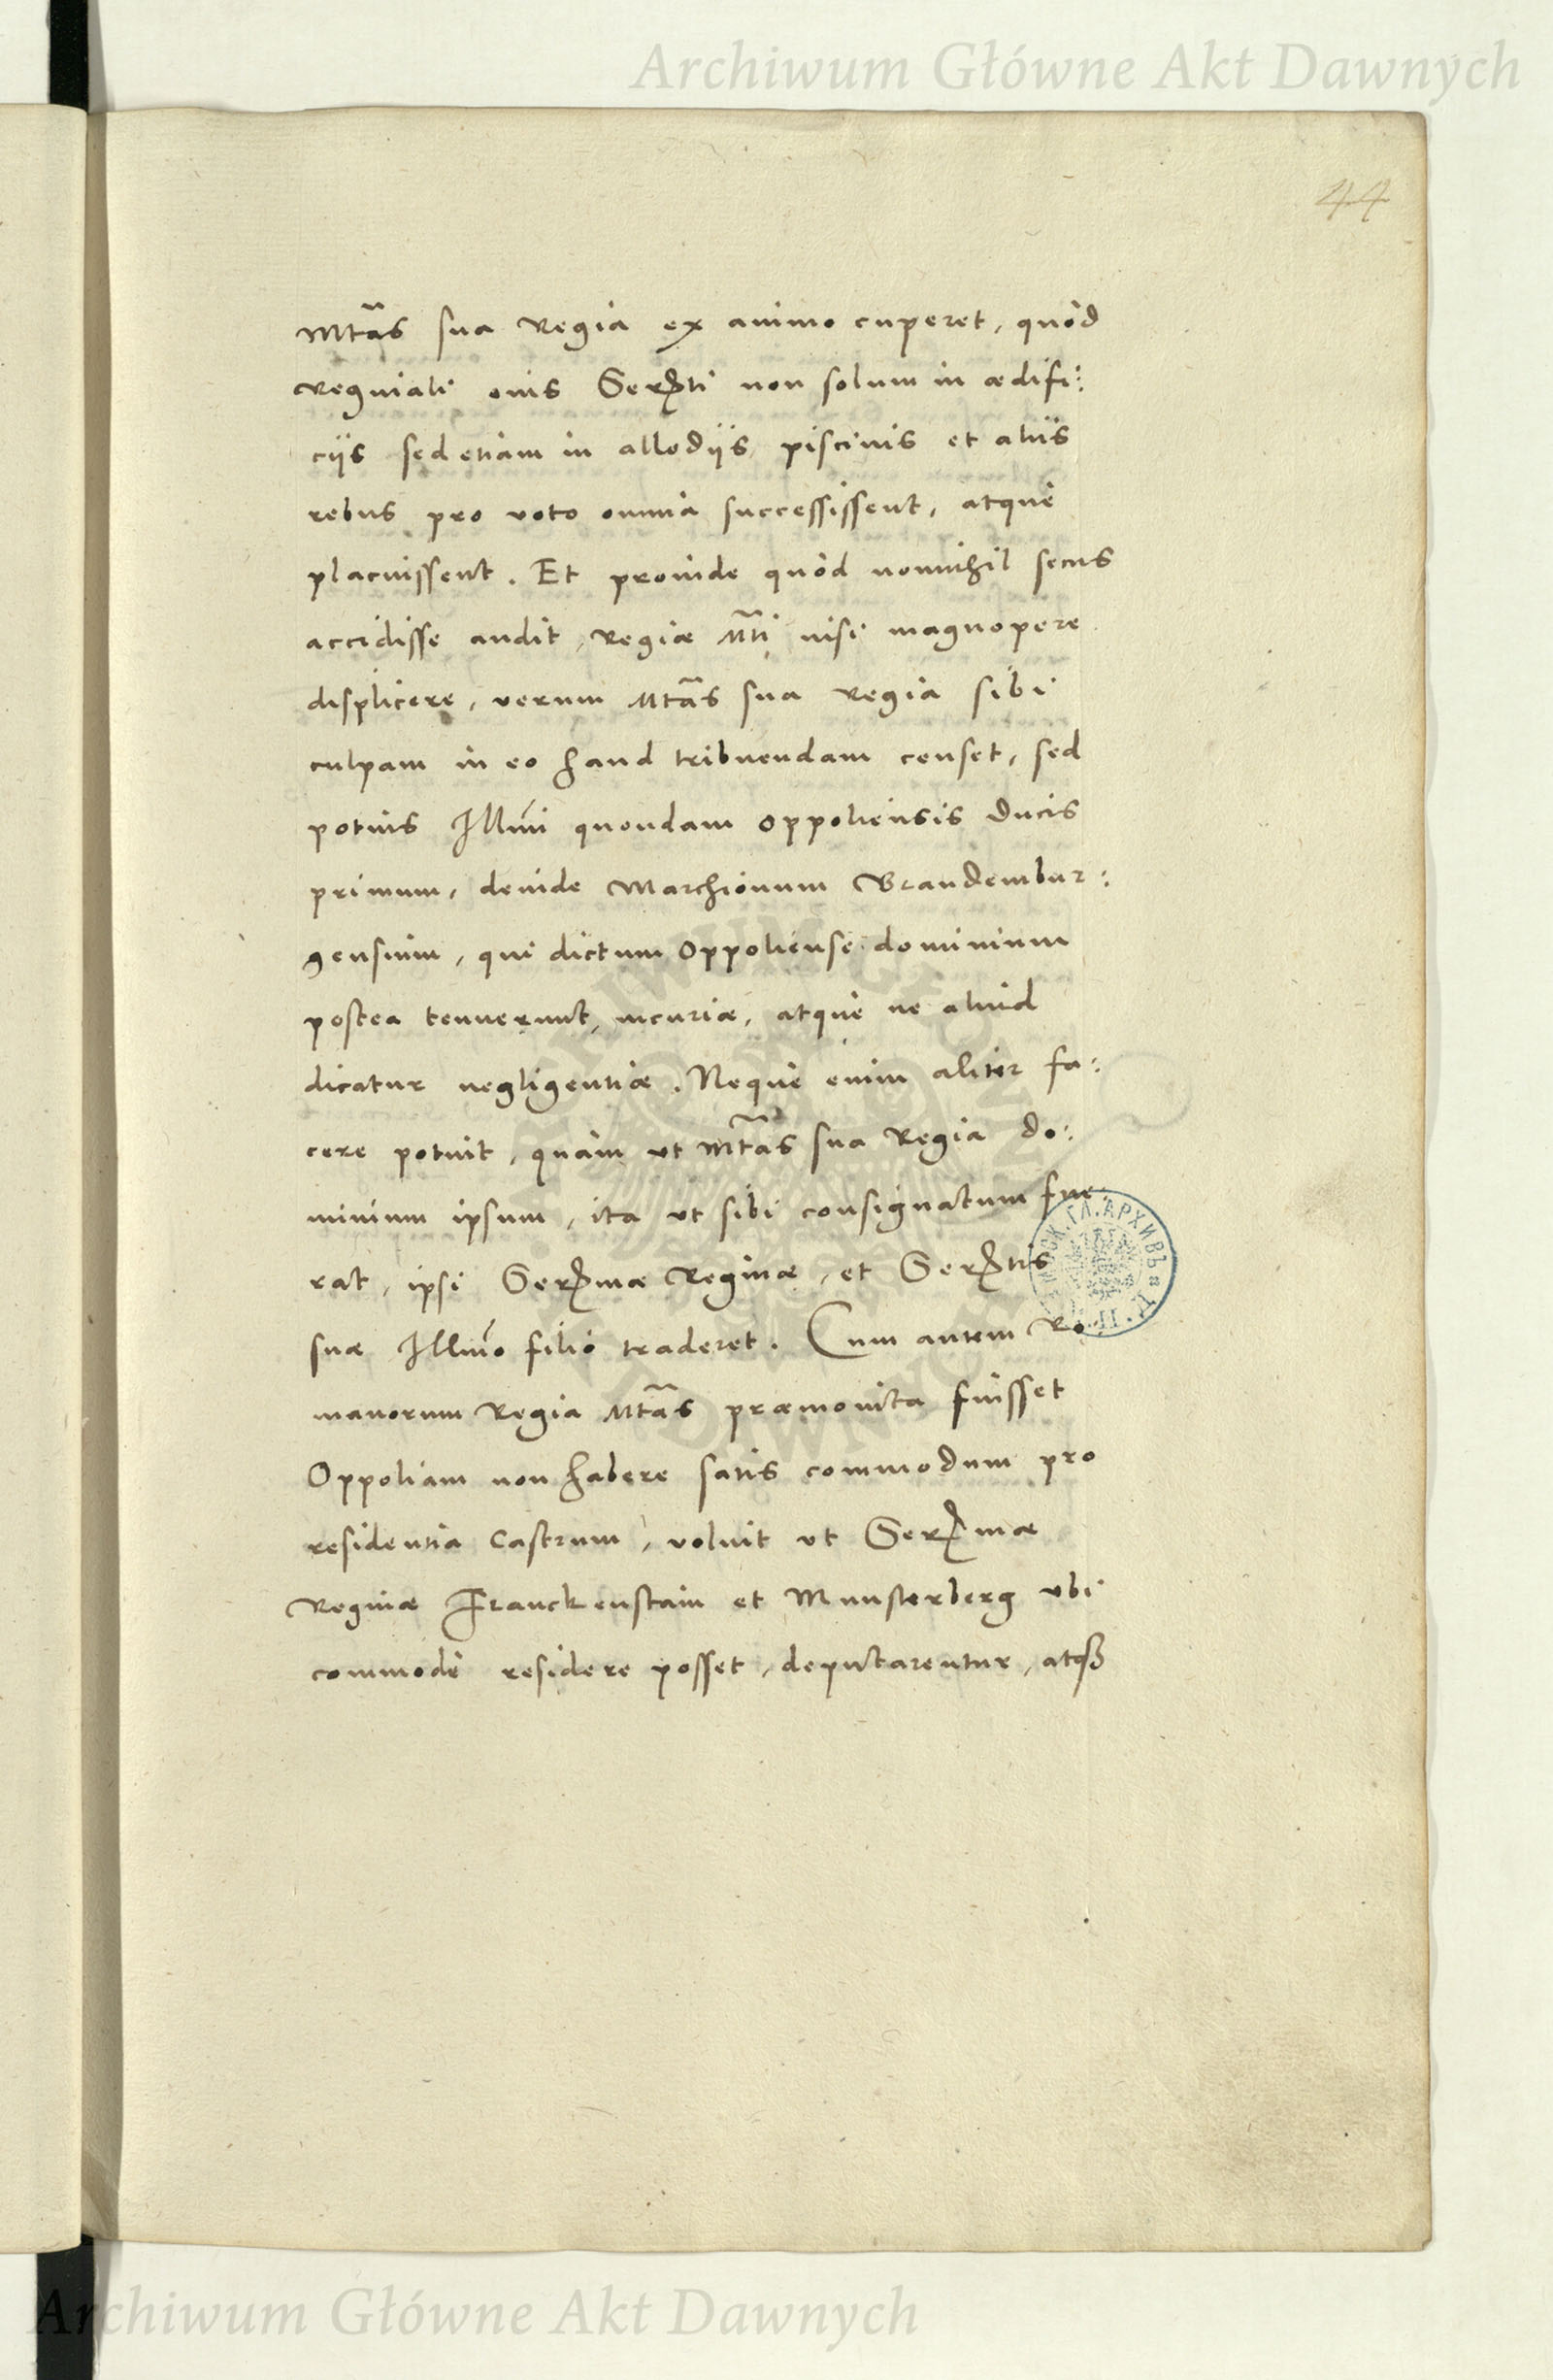 Archiwum Główne Akt Dawnych
44
Mtas sua Regia ex animo cuperet, quod
Reginali eius Serti non solum in ædifi:
ciis sed etiam in allodijs, piscinis et alijs
rebus pro voto omnia successissent, atque
placuissent. Et proinde quod nonnihil secus
accidisse audit, Regiæ Mti nisi magnopere
displicere, verum Mtas sua Regia sibi
culpam in eo haud tribuendam censet, sed
potius Illmi quondam Oppoliensis Ducis
primum, deinde Marchionum Brandembur:
gensium, qui dictum Oppoliense dominium
postea tenuerunt, incuriæ, atque ne aliud
dicatur negligentiæ. Neque enim aliter fa:
cere potuit, quam ut Mtas sua Regia do:
minium ipsum, ita ut sibi consignatum fue
rat, ipsi Sermæ Reginæ, et Sertis
suæ Illmo filio traderet. Cum autem Ro
manorum Regia Mtas præmonita fuisset
Oppoliam non habere satis commodum pro
residentia Castrum, voluit ut Sermæ
Reginæ Franckenstain et Munsterberg ubi
commodè residere posset, deputarentur, atqꝫ
Archiwum Główne Akt Dawnych